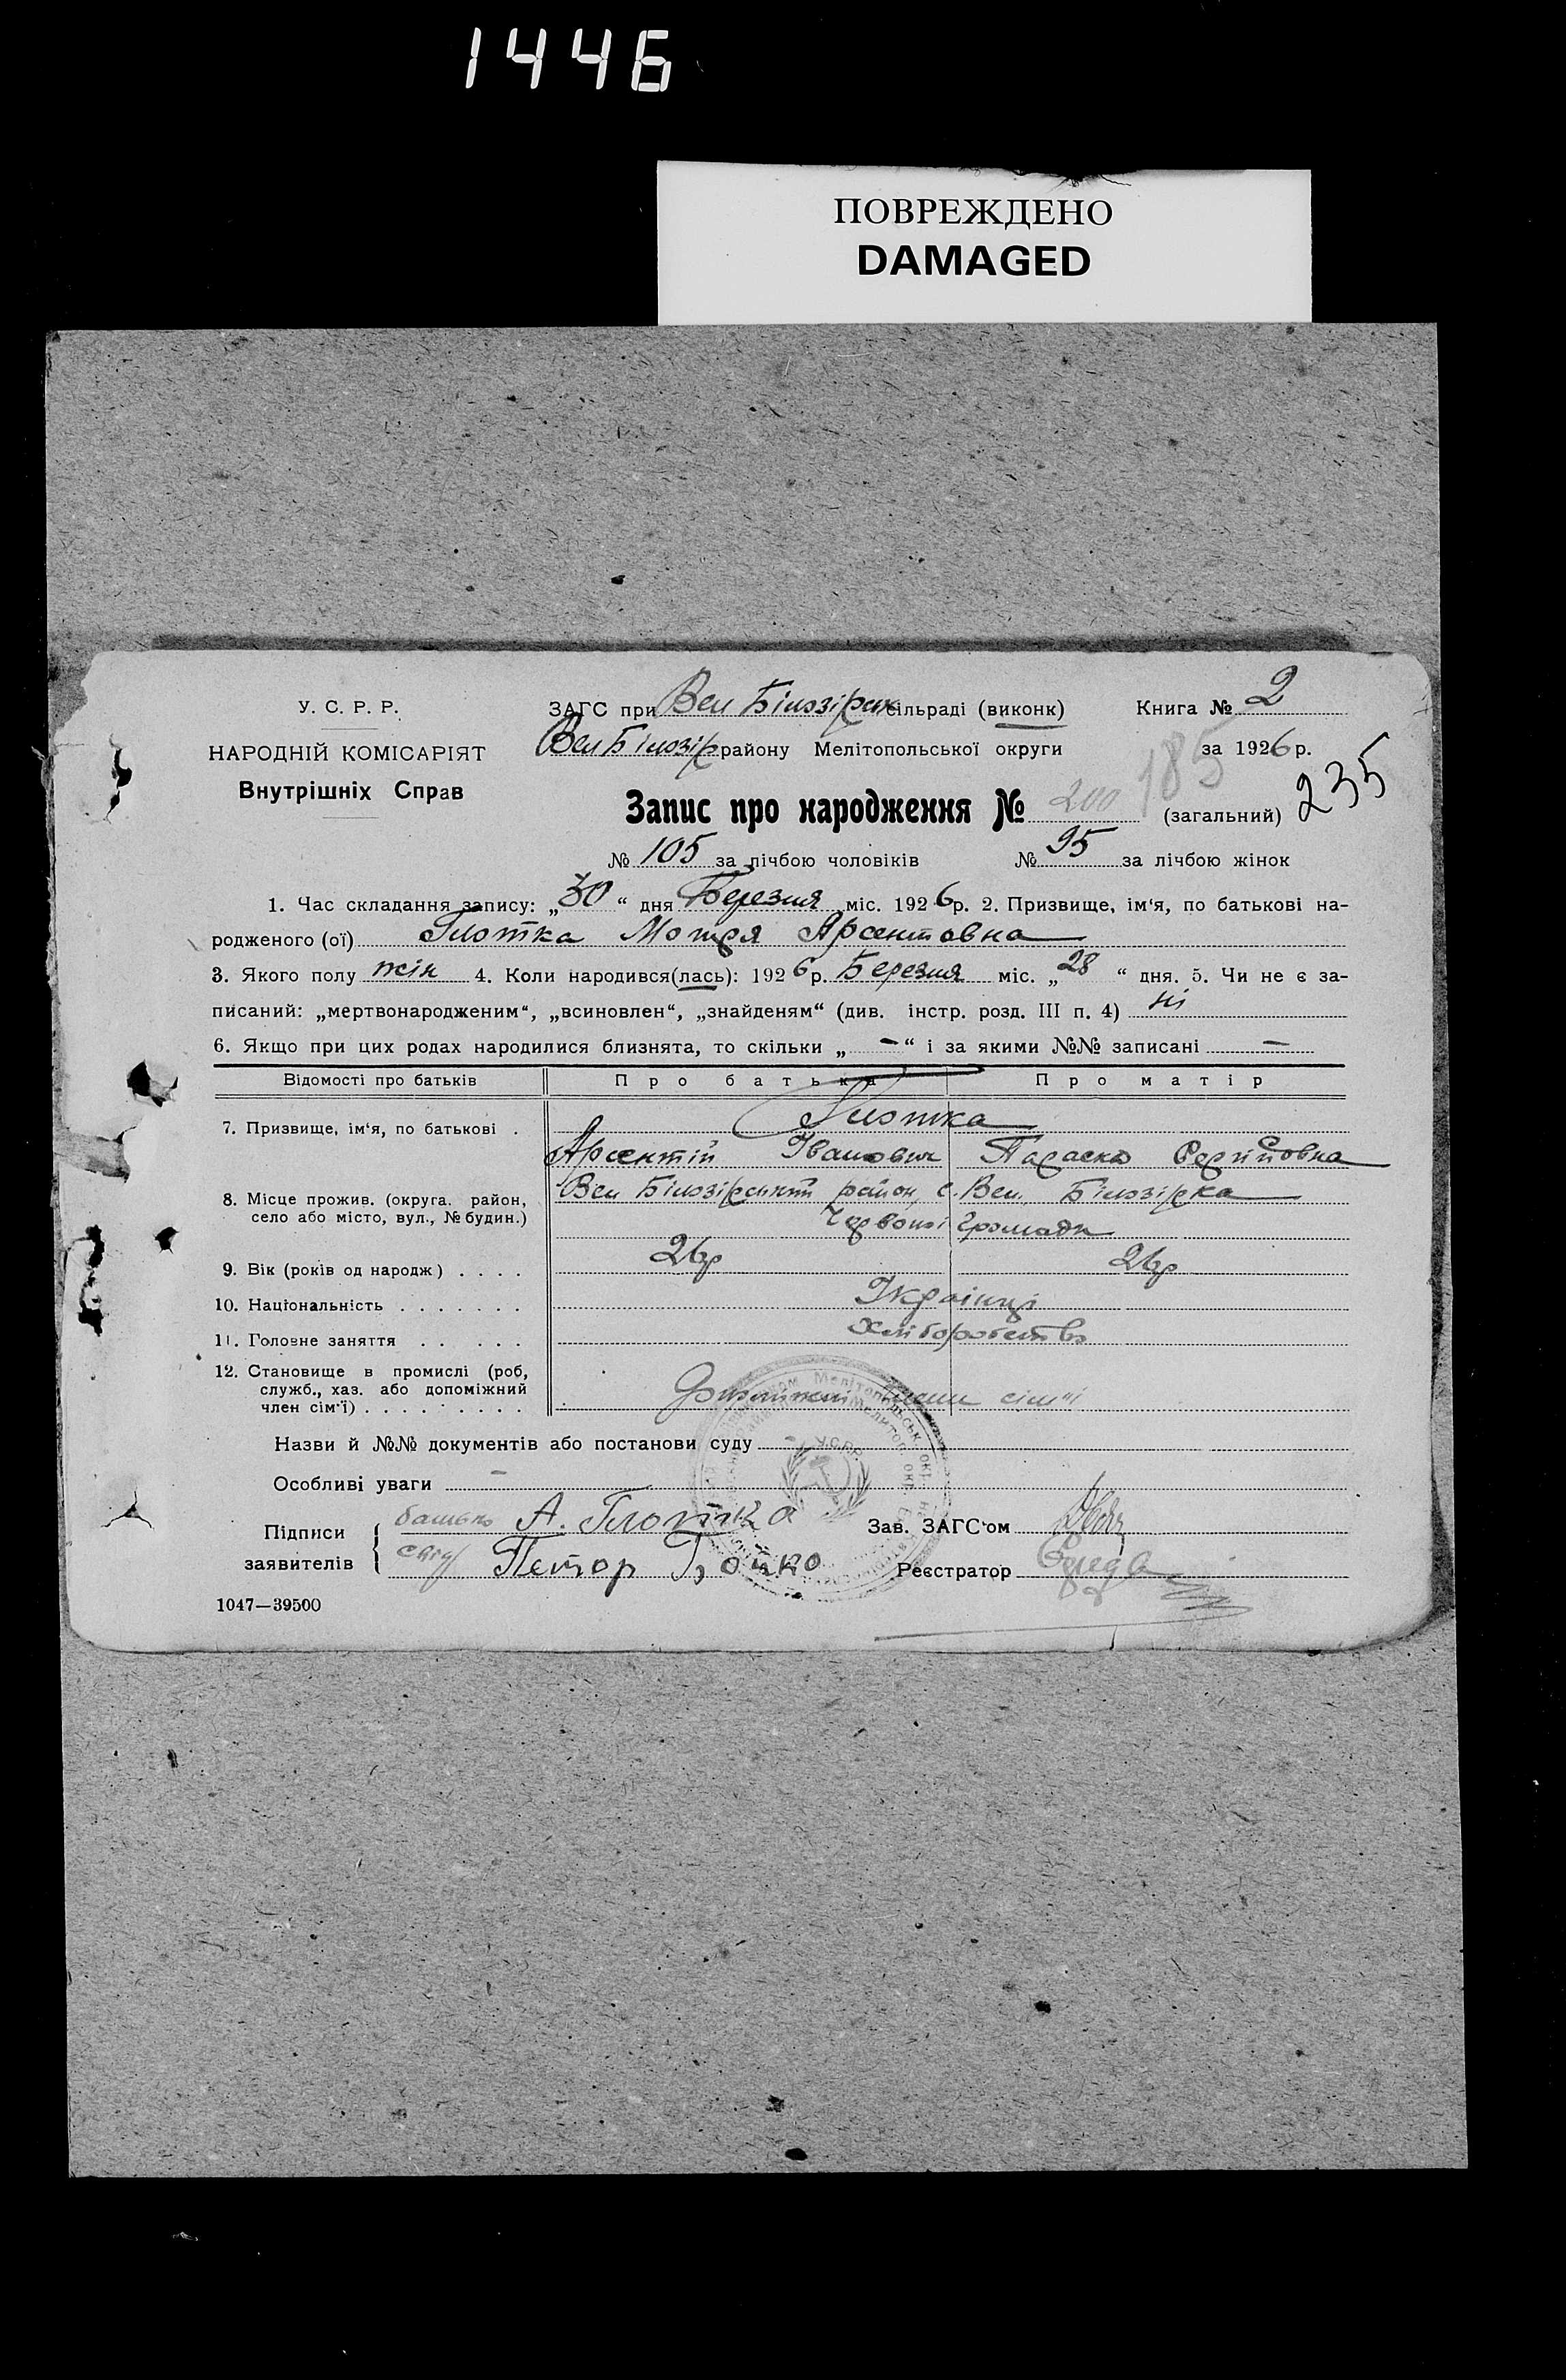 1446
ПОВРЕЖДЕНО
DAMAGED
У. С. Р. Р.
ЗАГС при Вел Білозірск сільраді (виконк)
Книга № 2
НАРОДНІЙ КОМІСАРІЯТ
Вел Білозір району Мелітопольської округи
за 1926 р.
Внутрішніх Справ
185
235
Запис про народження № 200 (загальний)
№ 105 за лічбою чоловіків № 95 за лічбою жінок
1. Час складання запису: „30“ дня Березня міс. 1926 р. 2. Призвище, ім'я, по батькові на-
родженого (ої) Глотка Мотря Арсентовна
3. Якого полу жін 4. Коли народився(лась): 1926 р. Березня міс. „28“ дня. 5. Чи не є за-
писаний: „мертвонародженим“, „всиновлен“, „знайденям“ (див. інстр. розд. III п. 4) ні
6. Якщо при цих родах народилися близнята, то скільки „ - “ і за якими №№ записані -
Відомості про батьків Про батька Про матір
7. Призвище, ім'я, по батькові . Глотка
Арсентій Іванович Параска
8. Місце прожив. (округа, район, Вел Білозірський район, с. Вел. Білозірка
село або місто, вул., № будин.) Червоної Громади
9. Вік (років од народж) . . . . 26р 26р
10. Національність . . . . . . . Українці
11. Головне заняття . . . . . . Хліборобство
12. Становище в промислі (роб,
служб., хаз. або допоміжний
член сім'ї) . . . . . . . . . члени сім'ї
Назви й №№ документів або постанови суду -
Особливі уваги -
У.С.Р.Р.
Підписи батько А. Глотка Зав. ЗАГС'ом
заявителів свід Петор Бойко Реєстратор
1047—39500